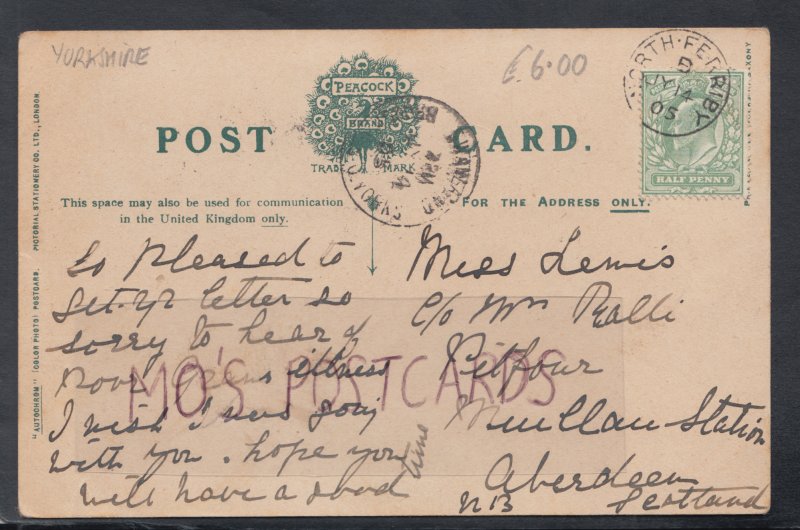 YORKSHIRE
£6.00
PEACOCK
BRAND
TRADE MARK
POST CARD.
NORTH·FERRIBY
B
JY 14
05
HALF PENNY
This space may also be used for communication
in the United Kingdom only.
FOR THE ADDRESS ONLY.
"AUTOCHROM" (COLOR PHOTO) POSTCARD. PICTORIAL STATIONERY CO. LTD., LONDON.
So pleased to
get yr letter so
sorry to hear of
poor illness
I wish I was going
with you. hope you
will have a good time
Miss Lewis
c/o Mrs Ralli
Pitfour
Station
Aberdeen
NB Scotland
MO'S POSTCARDS